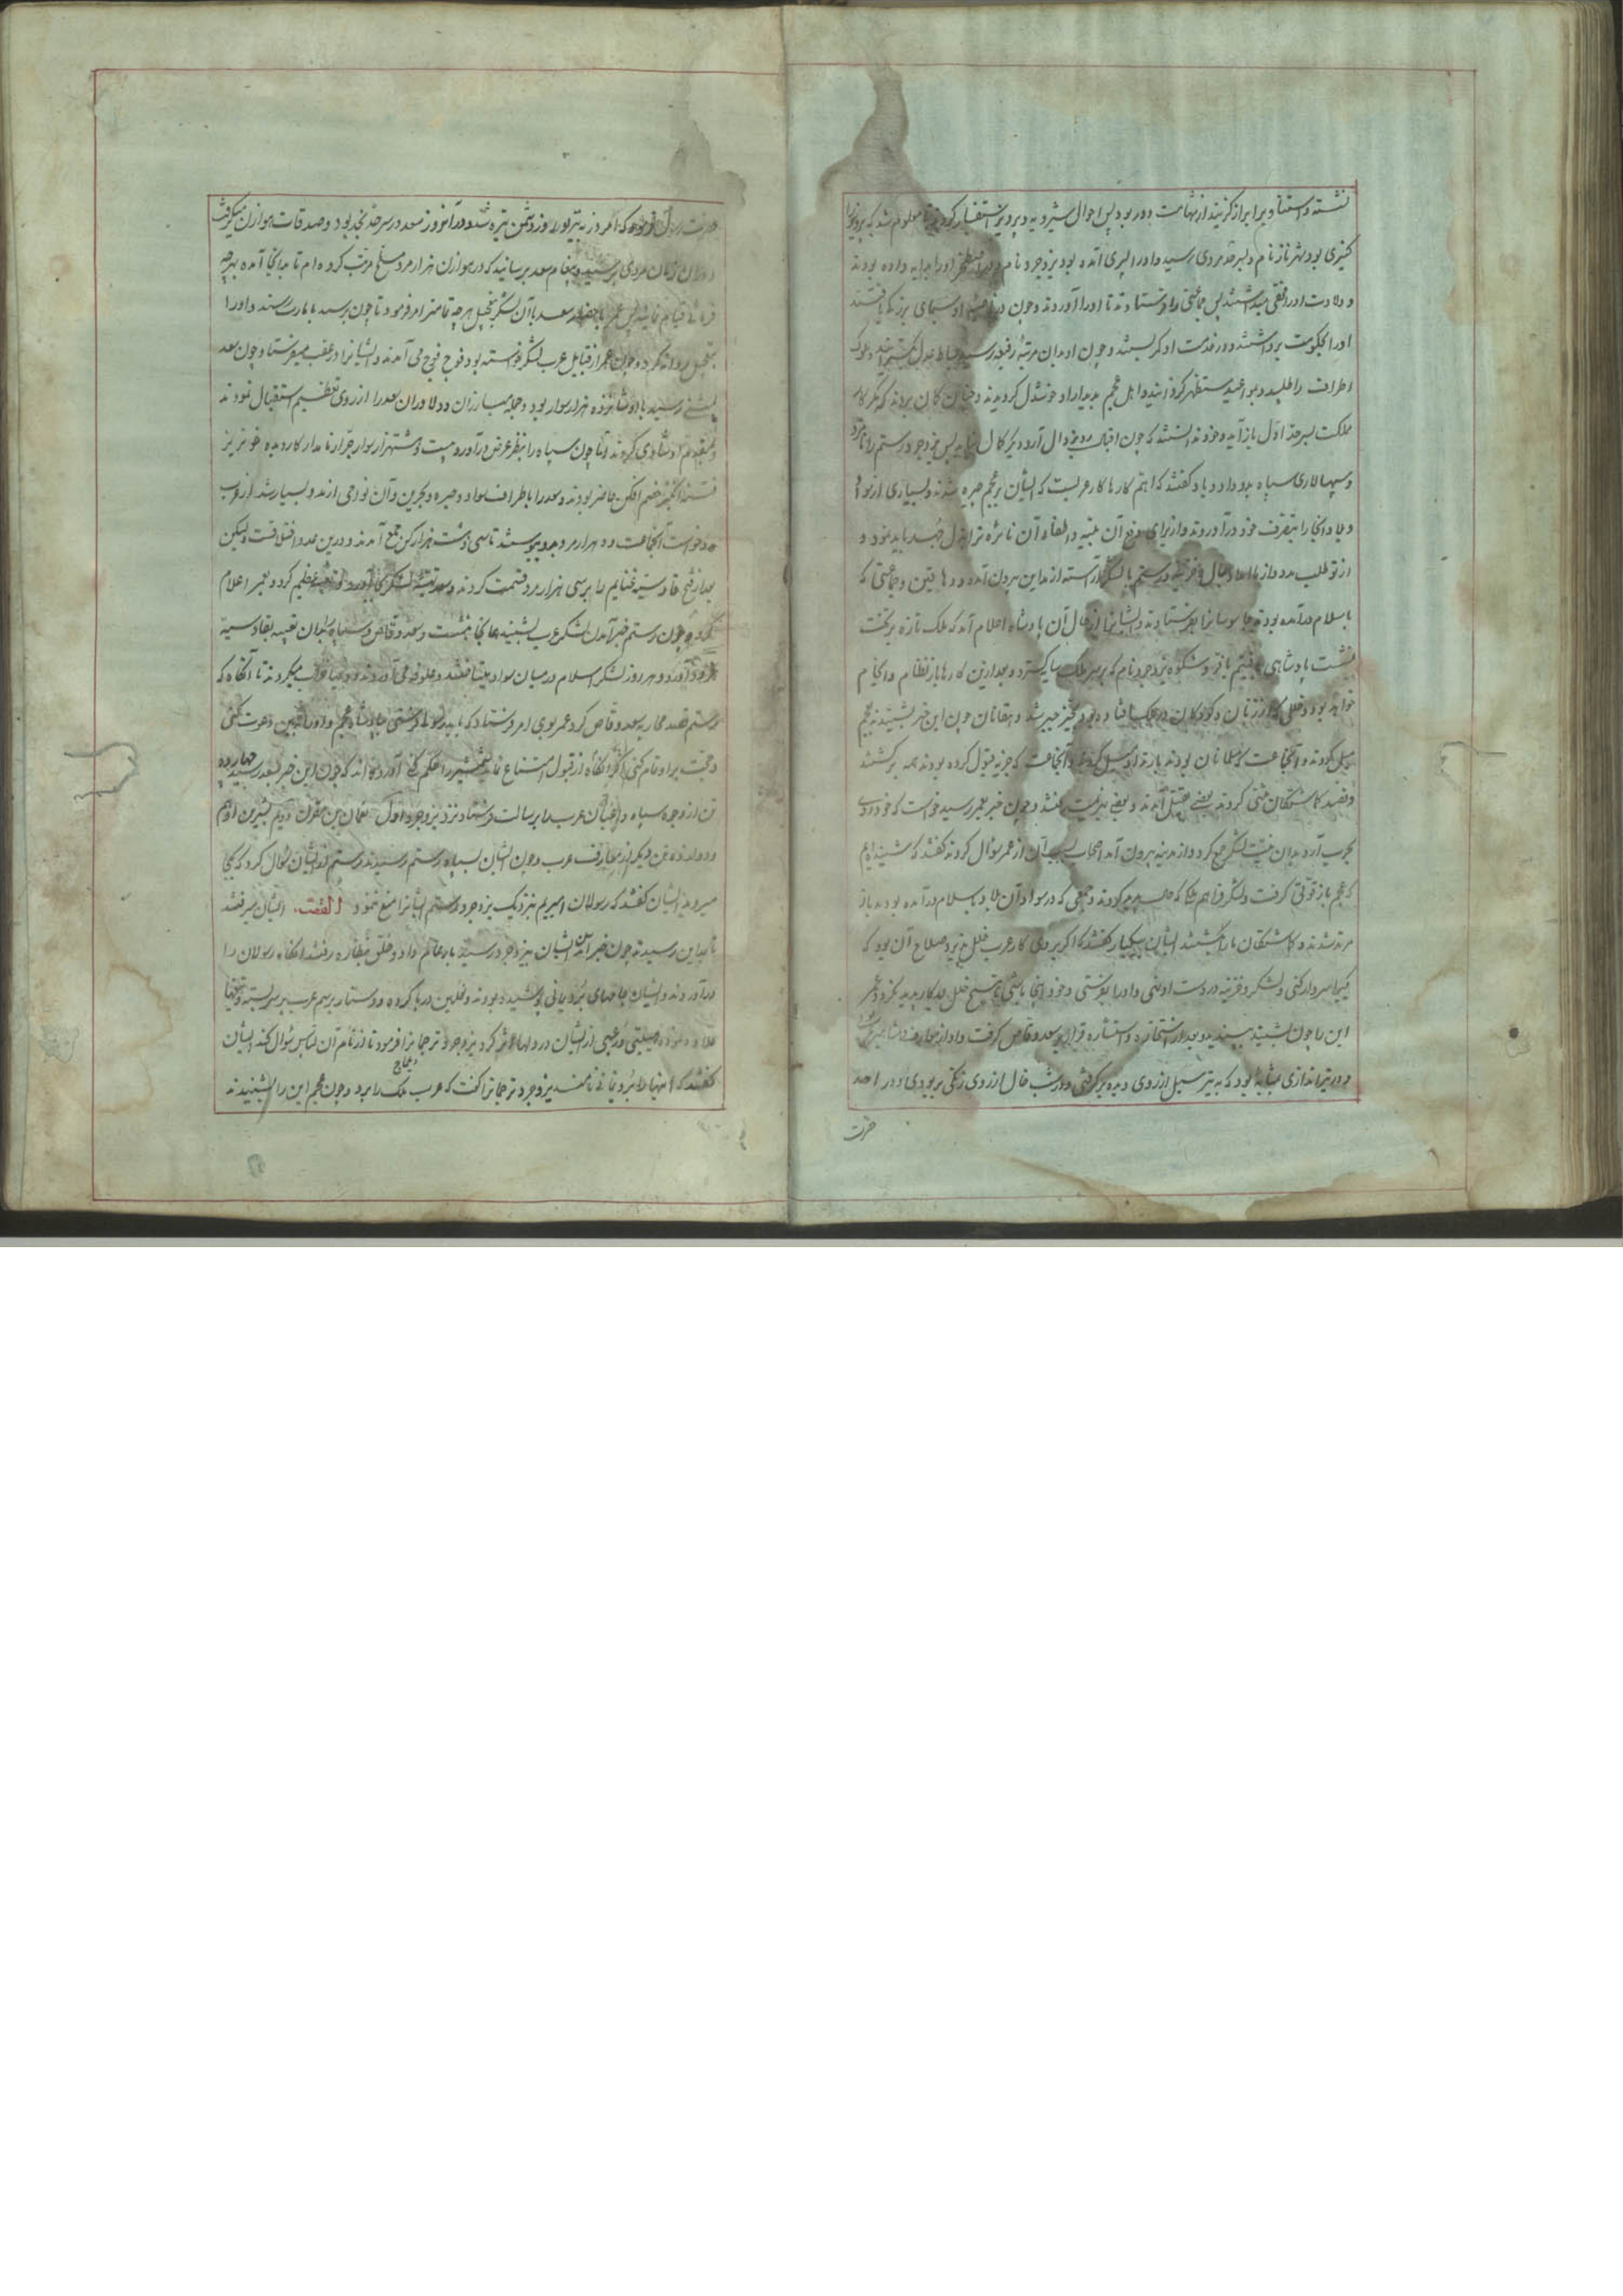 نشسته و استنا و برابر از کزیند از شهامت دور بود پس احوال شیرویه و پرویز استفسار کردند تا معلوم شد که پرویز را
کنیزی بود شهرناز نام دلبر حد مردی رسید و او را پسری آمده بود یزدجرد نام و او را بدایه داده بودند
و ولادت او را مخفی میداشتند پس جماعتی را فرستادند تا او را آوردند و چون در ناصیه او سیمای بزرگی یافتند
او را بحکومت برداشتند و در خدمت او کمر بستند و چون او بدان مرتبه رفیعه رسید بساط عدل بگسترانید و ملوک
اطراف را طلبید و بمواعید مستظهر گردانید و اهل عجم بدیدار او خوشدل گردیدند و چنان گمان بردند که مگر کار
مملکت بسر حد اول باز آید و خود ندانستند که چون اقبال رو بزوال آرد دیگر کمال نیابد پس یزدجرد رستم را نامزد
و سپهسالاری سپاه بدو داد و با او گفتند که اهتم کارها کار عربست که ایشان بر عجم چیره شدند و بسیاری از نواحی
و بلاد انجا را بتصرف خود درآوردند و از برای دفع آن بنیه و اطفاء آن نائره ترا بذل جهد باید نمود و
از تو طلب مدد و از ما امداد مال و خزینه و رستم با لشکر آراسته از مداین بیرون آمد و دهاقین و جماعتی که
باسلام درآمده بودند جاسوسانرا بفرستادند و ایشانرا از حال آن پادشاه اعلام آمد که ملک تازه بر تخت
نشست پادشاهی بافر و شکوه یزدجرد نام که بر سر ملک سایه گسترد و بعد ازین کارها با نظام و انجام
خواهد بود و خللی که از زنان و کودکان در ملک افتاده بود بخیر جبیر شد دهقانان چون این خبر بشنیدند بعجم
میل کردند و آنجماعت که مسلمانان بودند بازتد او میل کردند و آنجماعت که جزیه قبول کرده بودند همه برگشتند
و قصد گماشتگان مثنی کردند بعضی بقتل آمدند و بعضی بهزیمت رفتند و چون خبر بعمر رسید خواست که خود روی
بحرب آرد بدان نیت لشکر جمع کرد و از مدینه بیرون آمد اصحاب سبب آن از عمر سؤال کردند گفت که شنیده‌ام
که عجم باز قوتی گرفت و لشکر فراهم و جمعی که در سواد آن بلاد باسلام درآمده بودند باز
مرتد شدند و گماشتگان ما را بکشتند ایشان بیکبار گفتند که اگر بروی کار عرب خلل پذیرد صلاح آن بود که
یکی را سردار کنی و لشکر و خزینه در دست او نهی و او را بفرستی و خود اینجا باشی تا هیچ خلل در کار پدید نگردد عمر
این را چون بشنید پسندید و بعد از استخاره و استشاره قرار بر سعد وقاص گرفت و او از معارف و مشاهیر عرب بود
و در تیراندازی بمثابه بود که به تیر سبل از روی دیده برگرفتی و در شب خال از روی زنگی بربودی و در احد
حضرت
حضرت رسول فرمود که امروز به تیر تو روز دشمن تیره شد و در آنروز سعد در سرحد نجد بود و صدقات هوازن میگرفت
در آن زمان مردی برسید و پیغام سعد برسانید که در هوازن هزار مرد مسلح مرتب کرده‌ام تا بدانجا آمده بهرچه
فرمائی قیام نمائیم پس عمر باحضار سعد با آن لشکر بتعجیل هر چه تمامتر امر فرمود تا چون برسید بامارت رسند و او را
بتعجیل روانه کرد و چون عمر از قبایل عرب لشکر خواسته بود فوج فوج می آمدند و ایشانرا در عقب میفرستاد و چون سعد
بمثنی رسید با او شانزده هزار سوار بود و جمله مبارزان و دلاوران سعد را از روی تعظیم استقبال نمودند
و بمقدم او شادی کردند اما چون سپاه را بنظر عرض درآورد بیست و هشت هزار سوار جرار نامدار کار دیده خونریز
فتنه انگیز خصم افکن حاضر بودند و سعد را باطراف سواد و حیره و بحرین و آن نواحی از مدد بسیار شد از عرب
مدد خواست آنجماعت دو هزار مرد بدو پیوستند تا سی و شش هزار کس جمع آمدند و درین عدد اختلافست لیکن
بعد از فتح قادسیه غنایم را بر سی هزار مرد قسمت کردند و سعد تعبیه لشکر کرد و بعمر اعلام
کرد و چون رستم خبر آمدن لشکر عرب بشنید همانجا بنشست و سعد وقاص و سپاه بدان تعبیه بقادسیه
فرود آوردند و هر روز لشکر اسلام در میان سواد میتاختند و علوفه می آوردند و غارت میکردند تا آنگاه که
رستم قصد محاربه سعد وقاص کرد عمر بوی امر فرستاد که باید رسولی فرستی بپادشاه عجم و او را بدین دعوت کنی
و حجت بر او تمام کنی اگر آنگاه از قبول امتناع نماید شمشیر را حکم کن آورده‌اند که چون این خبر بسعد رسید چهارده
تن از وجوه سپاه و اعیان عرب را برسالت فرستاد نزد یزدجرد اول نعمان بن مقرن دویم بشر بن ارهم
و دوازده تن دیگر از معارف عرب و چون ایشان بسپاه رستم رسیدند رستم از ایشان سؤال کرد که بکجا
میروید ایشان گفتند که رسولان امیریم بنزدیک یزدجرد رستم ایشانرا منع ننمود القصه ایشان میرفتند
تا بمداین رسیدند چون خبر آمدن ایشان بیزدجرد رسید بار عام داد و خلق بنظاره رفتند آنگاه رسولان را
درآوردند و ایشان جامهای برد یمانی پوشیده بودند و نعلین در پا کرده و دستار برسم عرب بر سر بسته و تیغها
هیبتی و رعبی از ایشان در دلها اثر کرد یزدجرد ترجمانرا فرمود تا از نام آن لباس سؤال کند ایشان
گفتند که اینها را برد یمانی نامند یزدجرد ترجمانرا گفت که عرب ملک را برد و چون عجم این را بشنیدند